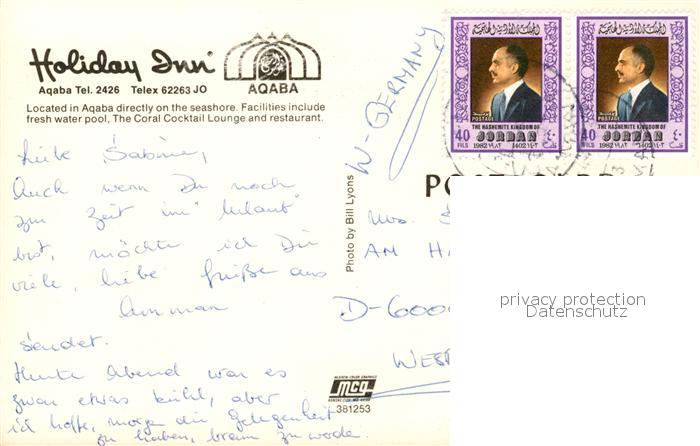 Holiday Inn
AQABA
Aqaba Tel. 2426 Telex 62263 JO
Located in Aqaba directly on the seashore. Facilities include
fresh water pool, The Coral Cocktail Lounge and restaurant.
Liebe Sabine,
Auch wenn Du noch
zur Zeit im "Urlaub"
bist, möchte ich Dir
viele, liebe Grüße aus
Amman
sendet.
Heute Abend war es
zwar etwas kühl, aber
ich hoffe, morgen die Gelegenheit
zu haben, braun zu werde.
W-GERMANY
Photo by Bill Lyons
المملكة الأردنية الهاشمية
POSTAGE
THE HASHEMITE KINGDOM OF
40 FILS JORDAN ٤٠
1982 ١٩٨٢ 1402 ١٤٠٢
المملكة الأردنية الهاشمية
POSTAGE
THE HASHEMITE KINGDOM OF
40 FILS JORDAN ٤٠
1982 ١٩٨٢ 1402 ١٤٠٢
AM HA
D-6000
WEST
mcg
381253
privacy protection
Datenschutz